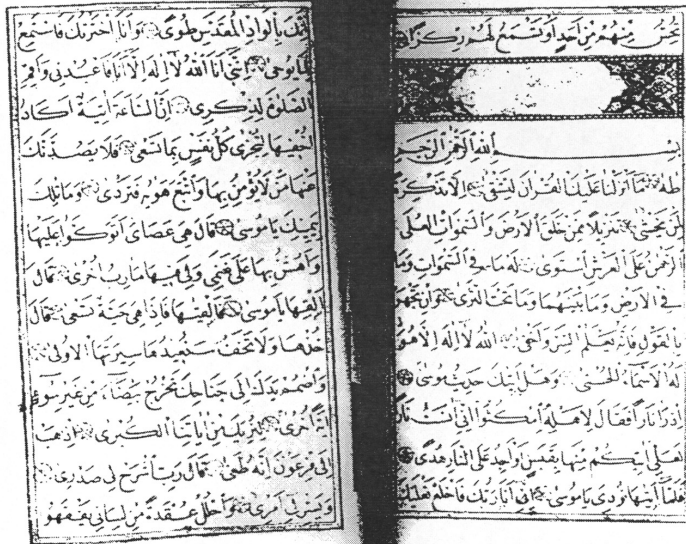 تحس منهم من احد او تسمع لهم ركزا
بسم الله الرحمن الرحيم
طه ما انزلنا عليك القران لتشقى الا تذكرة
لمن يخشى تنزيلا ممن خلق الارض والسموات العلى
الرحمن على العرش استوى له ما في السموات وما
في الارض وما بينهما وما تحت الثرى وان تجهر
بالقول فانه يعلم السر واخفى الله لا اله الا هو
له الاسماء الحسنى وهل اتيك حديث موسى
اذ را نارا فقال لاهله امكثوا اني انست نارا
لعلي اتيكم منها بقبس او اجد على النار هدى
فلما اتيها نودي يا موسى اني انا ربك فاخلع نعليك
انك بالواد المقدس طوى وانا اخترتك فاستمع
لما يوحى انني انا الله لا اله الا انا فاعبدني واقم
الصلوة لذكرى ان الساعة اتية اكاد
اخفيها لتجزى كل نفس بما تسعى فلا يصدنك
عنها من لا يؤمن بها واتبع هويه فتردى وما تلك
بيمينك يا موسى قال هي عصاى اتوكؤا عليها
واهش بها على غنمى ولى فيها مارب اخرى قال
القها يا موسى فالقيها فاذا هي حية تسعى قال
خذها ولا تخف سنعيدها سيرتها الاولى
واضمم يدك الى جناحك تخرج بيضاء من غير سوء
اية اخرى لنريك من اياتنا الكبرى اذهب
الى فرعون انه طغى قال رب اشرح لى صدرى
ويسر لى امرى واحلل عقدة من لسانى يفقهوا